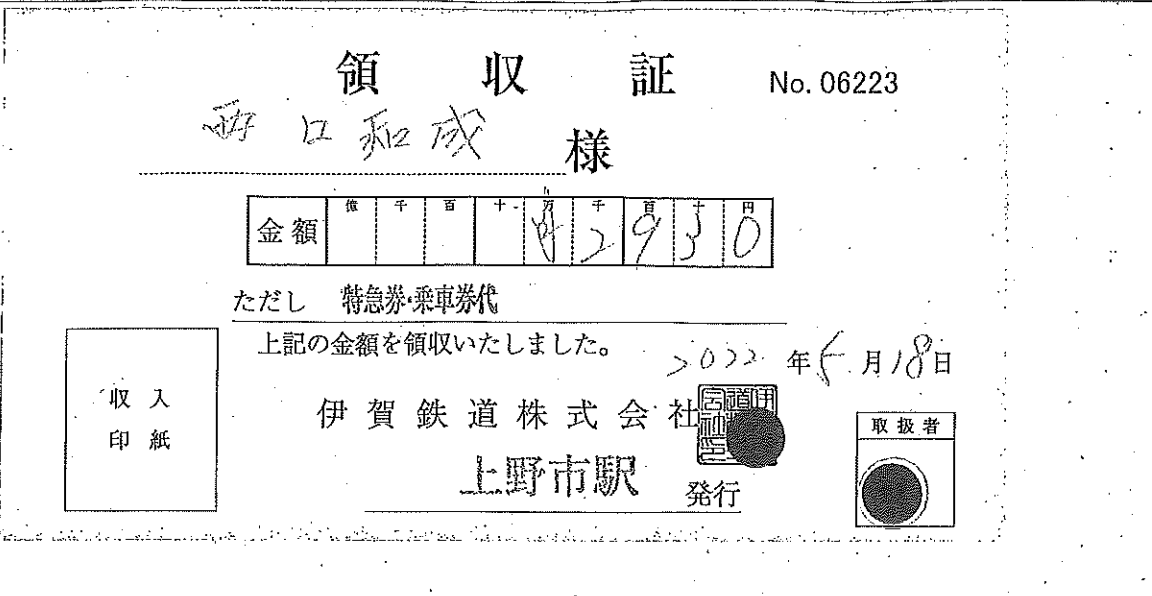 領収証 No. 06223
西口和成 様
金額 億 千 百 十 万 千 百 十 円
¥2930
ただし 特急券・乗車券代
上記の金額を領収いたしました。
2022年5月18日
収入
印紙
伊賀鉄道株式会社
上野市駅 発行
取扱者